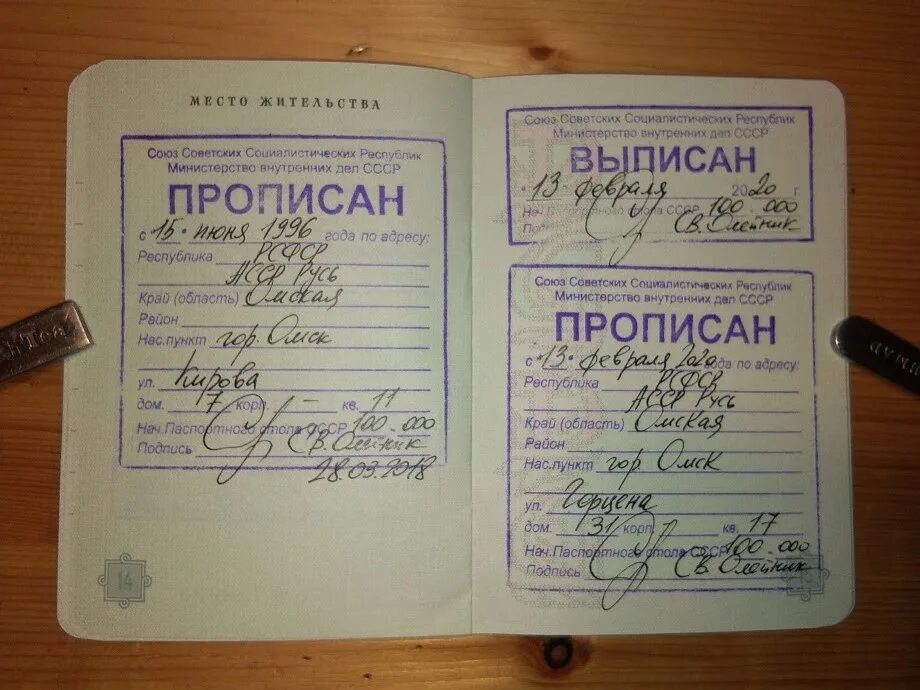 МЕСТО ЖИТЕЛЬСТВА
Союз Советских Социалистических Республик
Министерство внутренних дел СССР
ПРОПИСАН
с "15" июня 1996 года по адресу:
Республика РСФСР
АССР Русь
Край (область) Омская
Район
Нас.пункт гор. Омск
ул. Кирова
дом. 7 корп. – кв. 11
Нач.Паспортного стола СССР 100-000
Подпись С.В. Олейник
28.03.2018
14
Союз Советских Социалистических Республик
Министерство внутренних дел СССР
ВЫПИСАН
"13" февраля 2020 г
Нач. Паспортного стола СССР 100-000
С.В. Олейник
Союз Советских Социалистических Республик
Министерство внутренних дел СССР
ПРОПИСАН
с "13" февраля 2020 года по адресу:
Республика РСФСР
АССР Русь
Край (область) Омская
Район
Нас.пункт гор. Омск
ул. Горцена
дом. 31 корп. кв. 17
Нач.Паспортного стола СССР 100-000
Подпись С.В. Олейник